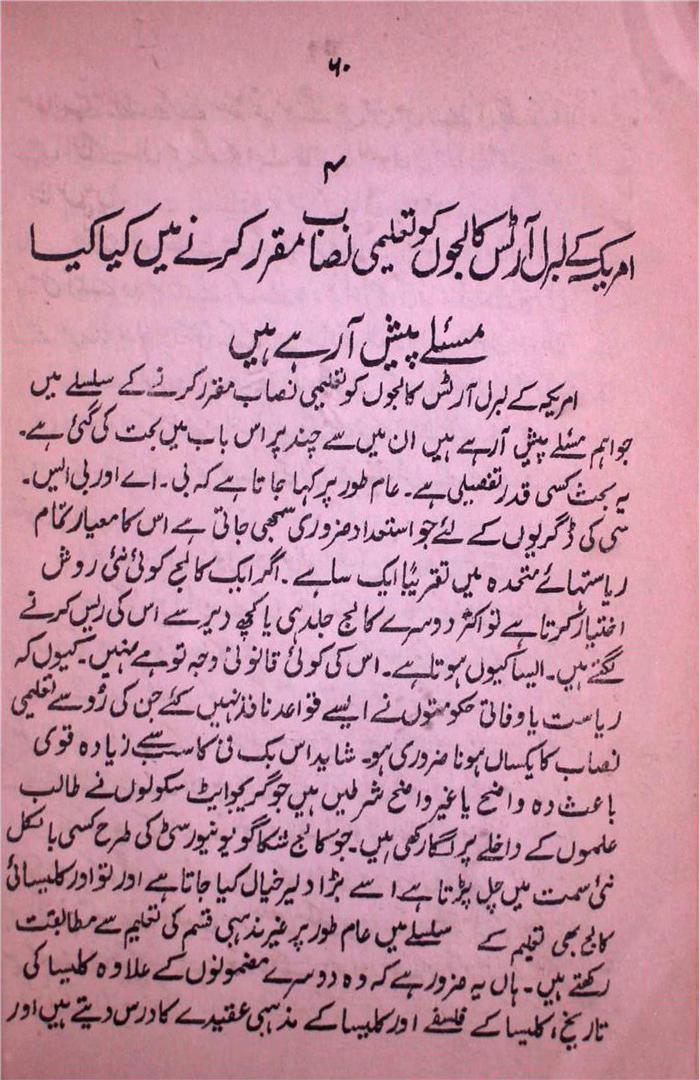 ۶۰
۴
امریکہ کے لبرل آرٹس کالجوں کو تعلیمی نصاب مقرر کرنے میں کیا کیا
مسئلے پیش آرہے ہیں
امریکہ کے لبرل آرٹس کالجوں کو تعلیمی نصاب مقرر کرنے کے سلسلے میں
جو اہم مسئلے پیش آرہے ہیں ان میں سے چند پر اس باب میں بحث کی گئی ہے۔
یہ بحث کسی قدر تفصیلی ہے۔ عام طور پر کہا جاتا ہے کہ بی۔اے اور بی ایس۔
سی کی ڈگریوں کے لئے جو استعداد ضروری سمجھی جاتی ہے اس کا معیار تمام
ریاستہائے متحدہ میں تقریباً ایک سا ہے۔ اگر ایک کالج کوئی نئی روش
اختیار کرتا ہے تو اکثر دوسرے کالج جلد ہی یا کچھ دیر سے اس کی ریس کرنے
لگتے ہیں۔ ایسا کیوں ہوتا ہے۔ اس کی کوئی قانونی وجہ تو ہے نہیں۔ کیوں کہ
ریاست یا وفاقی حکومتوں نے ایسے قواعد نافذ نہیں کئے جن کی رُو سے تعلیمی
نصاب کا یکساں ہونا ضروری ہو۔ شاید اس یک نی کا سب سے زیادہ قوی
باعث وہ واضح یا غیر واضح شرطیں ہیں جو گریجوایٹ سکولوں نے طالب
علموں کے داخلے پر لگا رکھی ہیں۔ جو کالج شکاگو یونیورسٹی کی طرح کسی بالکل
نئی سمت میں چل پڑتا ہے اسے بڑا دلیر خیال کیا جاتا ہے اور تو اور کلیسائی
کالج بھی تعلیم کے سلسلے میں عام طور پر غیر مذہبی قسم کی تعلیم سے مطابقت
رکھتے ہیں۔ ہاں یہ ضرور ہے کہ وہ دوسرے مضمونوں کے علاوہ کلیسا کی
تاریخ، کلیسا کے فلسفے اور کلیسا کے مذہبی عقیدے کا درس دیتے ہیں اور